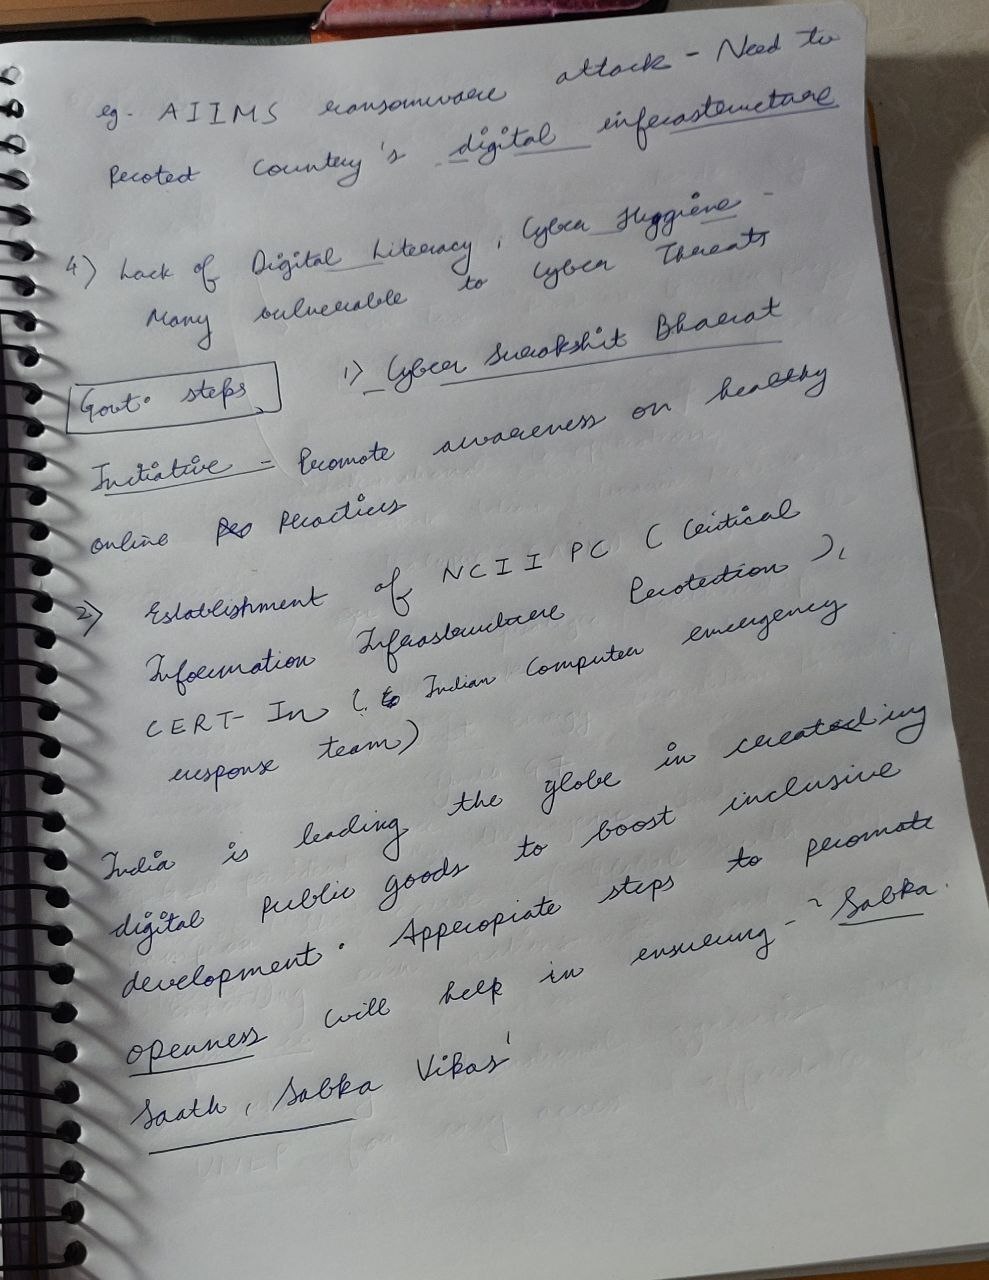 eg. AIIMS ransomware attack - Need to
Protect Country's digital infrastructure
4) Lack of Digital Literacy, Cyber Hyggiene -
Many vulnerable to Cyber Threats
Govt. steps 1) Cyber Surakshit Bharat
Initiative = Promote awareness on healthy
online practices
2) Establishment of NCIIPC (Critical
Information Infrastructure Protection),
CERT-In (Indian Computer emergency
response team)
India is leading the globe in creating
digital public goods to boost inclusive
development. Appropiate steps to promote
openness will help in ensuring - 'Sabka
Saath, Sabka Vikas'